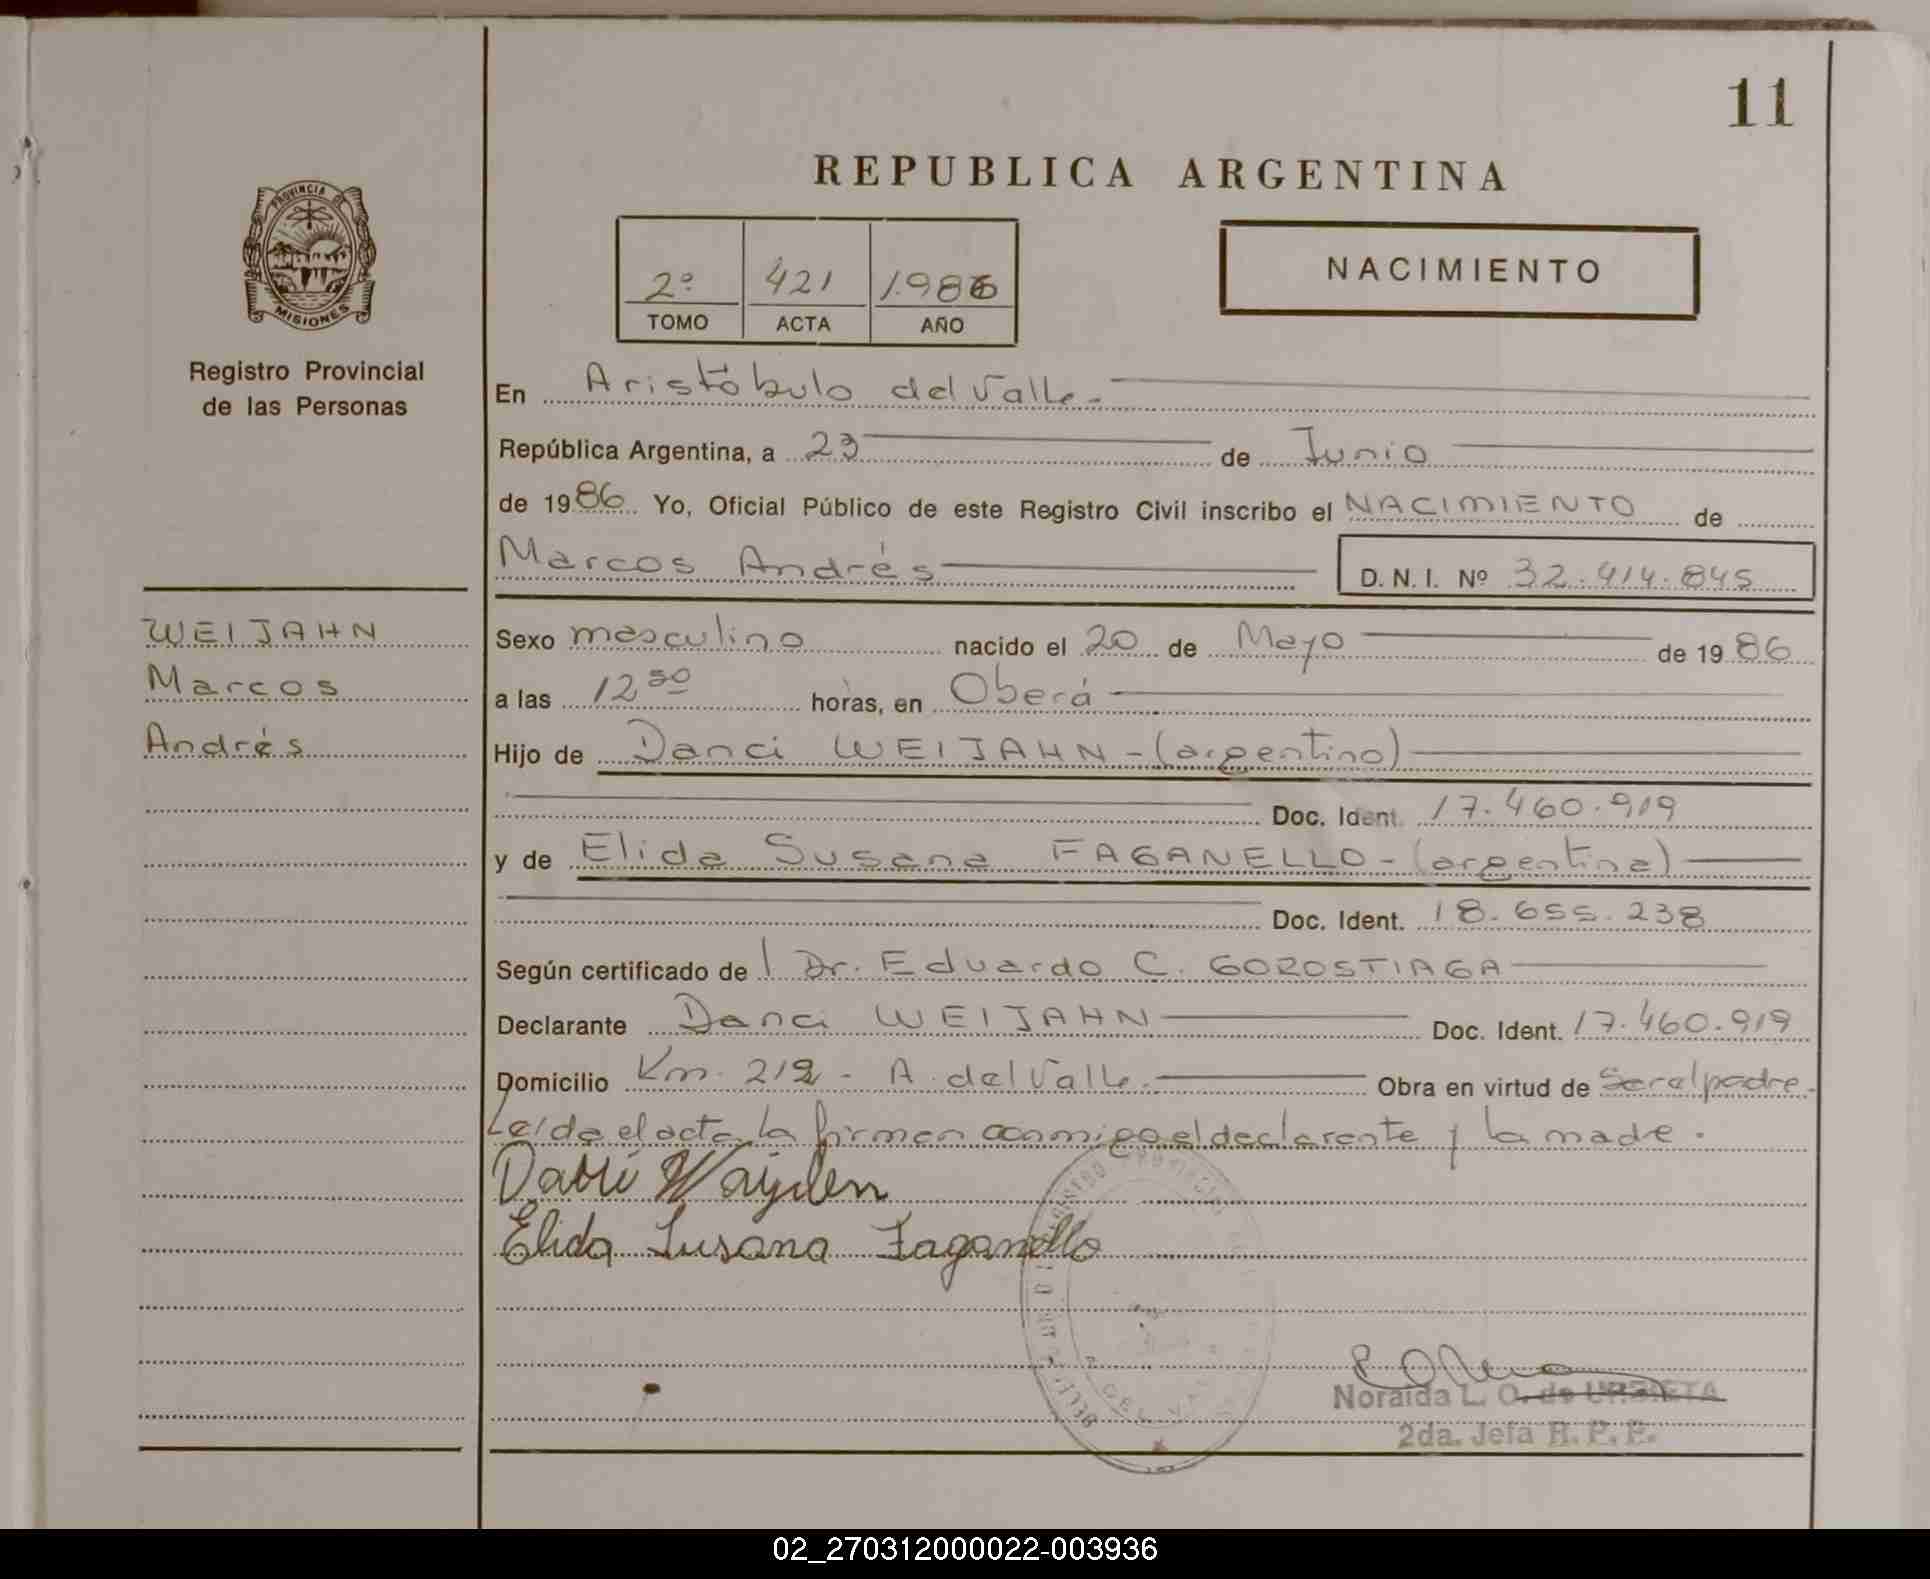 11
REPUBLICA ARGENTINA
PROVINCIA DE
MISIONES
Registro Provincial
de las Personas
2º 421 1.986
TOMO ACTA AÑO
NACIMIENTO
En Aristóbulo del Valle.-
República Argentina, a 23 de Junio
de 1986. Yo, Oficial Público de este Registro Civil inscribo el NACIMIENTO de
Marcos Andrés D.N.I. Nº 32.414.845
WEIJAHN
Marcos
Andrés
Sexo masculino nacido el 20 de Mayo de 1986
a las 12 horas, en Oberá
Hijo de Danci WEIJAHN - (argentino)
Doc. Ident. 17.460.919
y de Elida Susana FAGANELLO - (argentina)
Doc. Ident. 18.655.238
Según certificado de Dr. Eduardo C. GOROSTIAGA
Declarante Danci WEIJAHN Doc. Ident. 17.460.919
Domicilio Km. 212 - A. del Valle. Obra en virtud de Ser el padre.-
Leída el acta la firman conmigo el declarante y la madre.
Elida Susana Faganello
Noraida L. O. de URBIETA
2da. Jefa R. P. P.
02_270312000022-003936